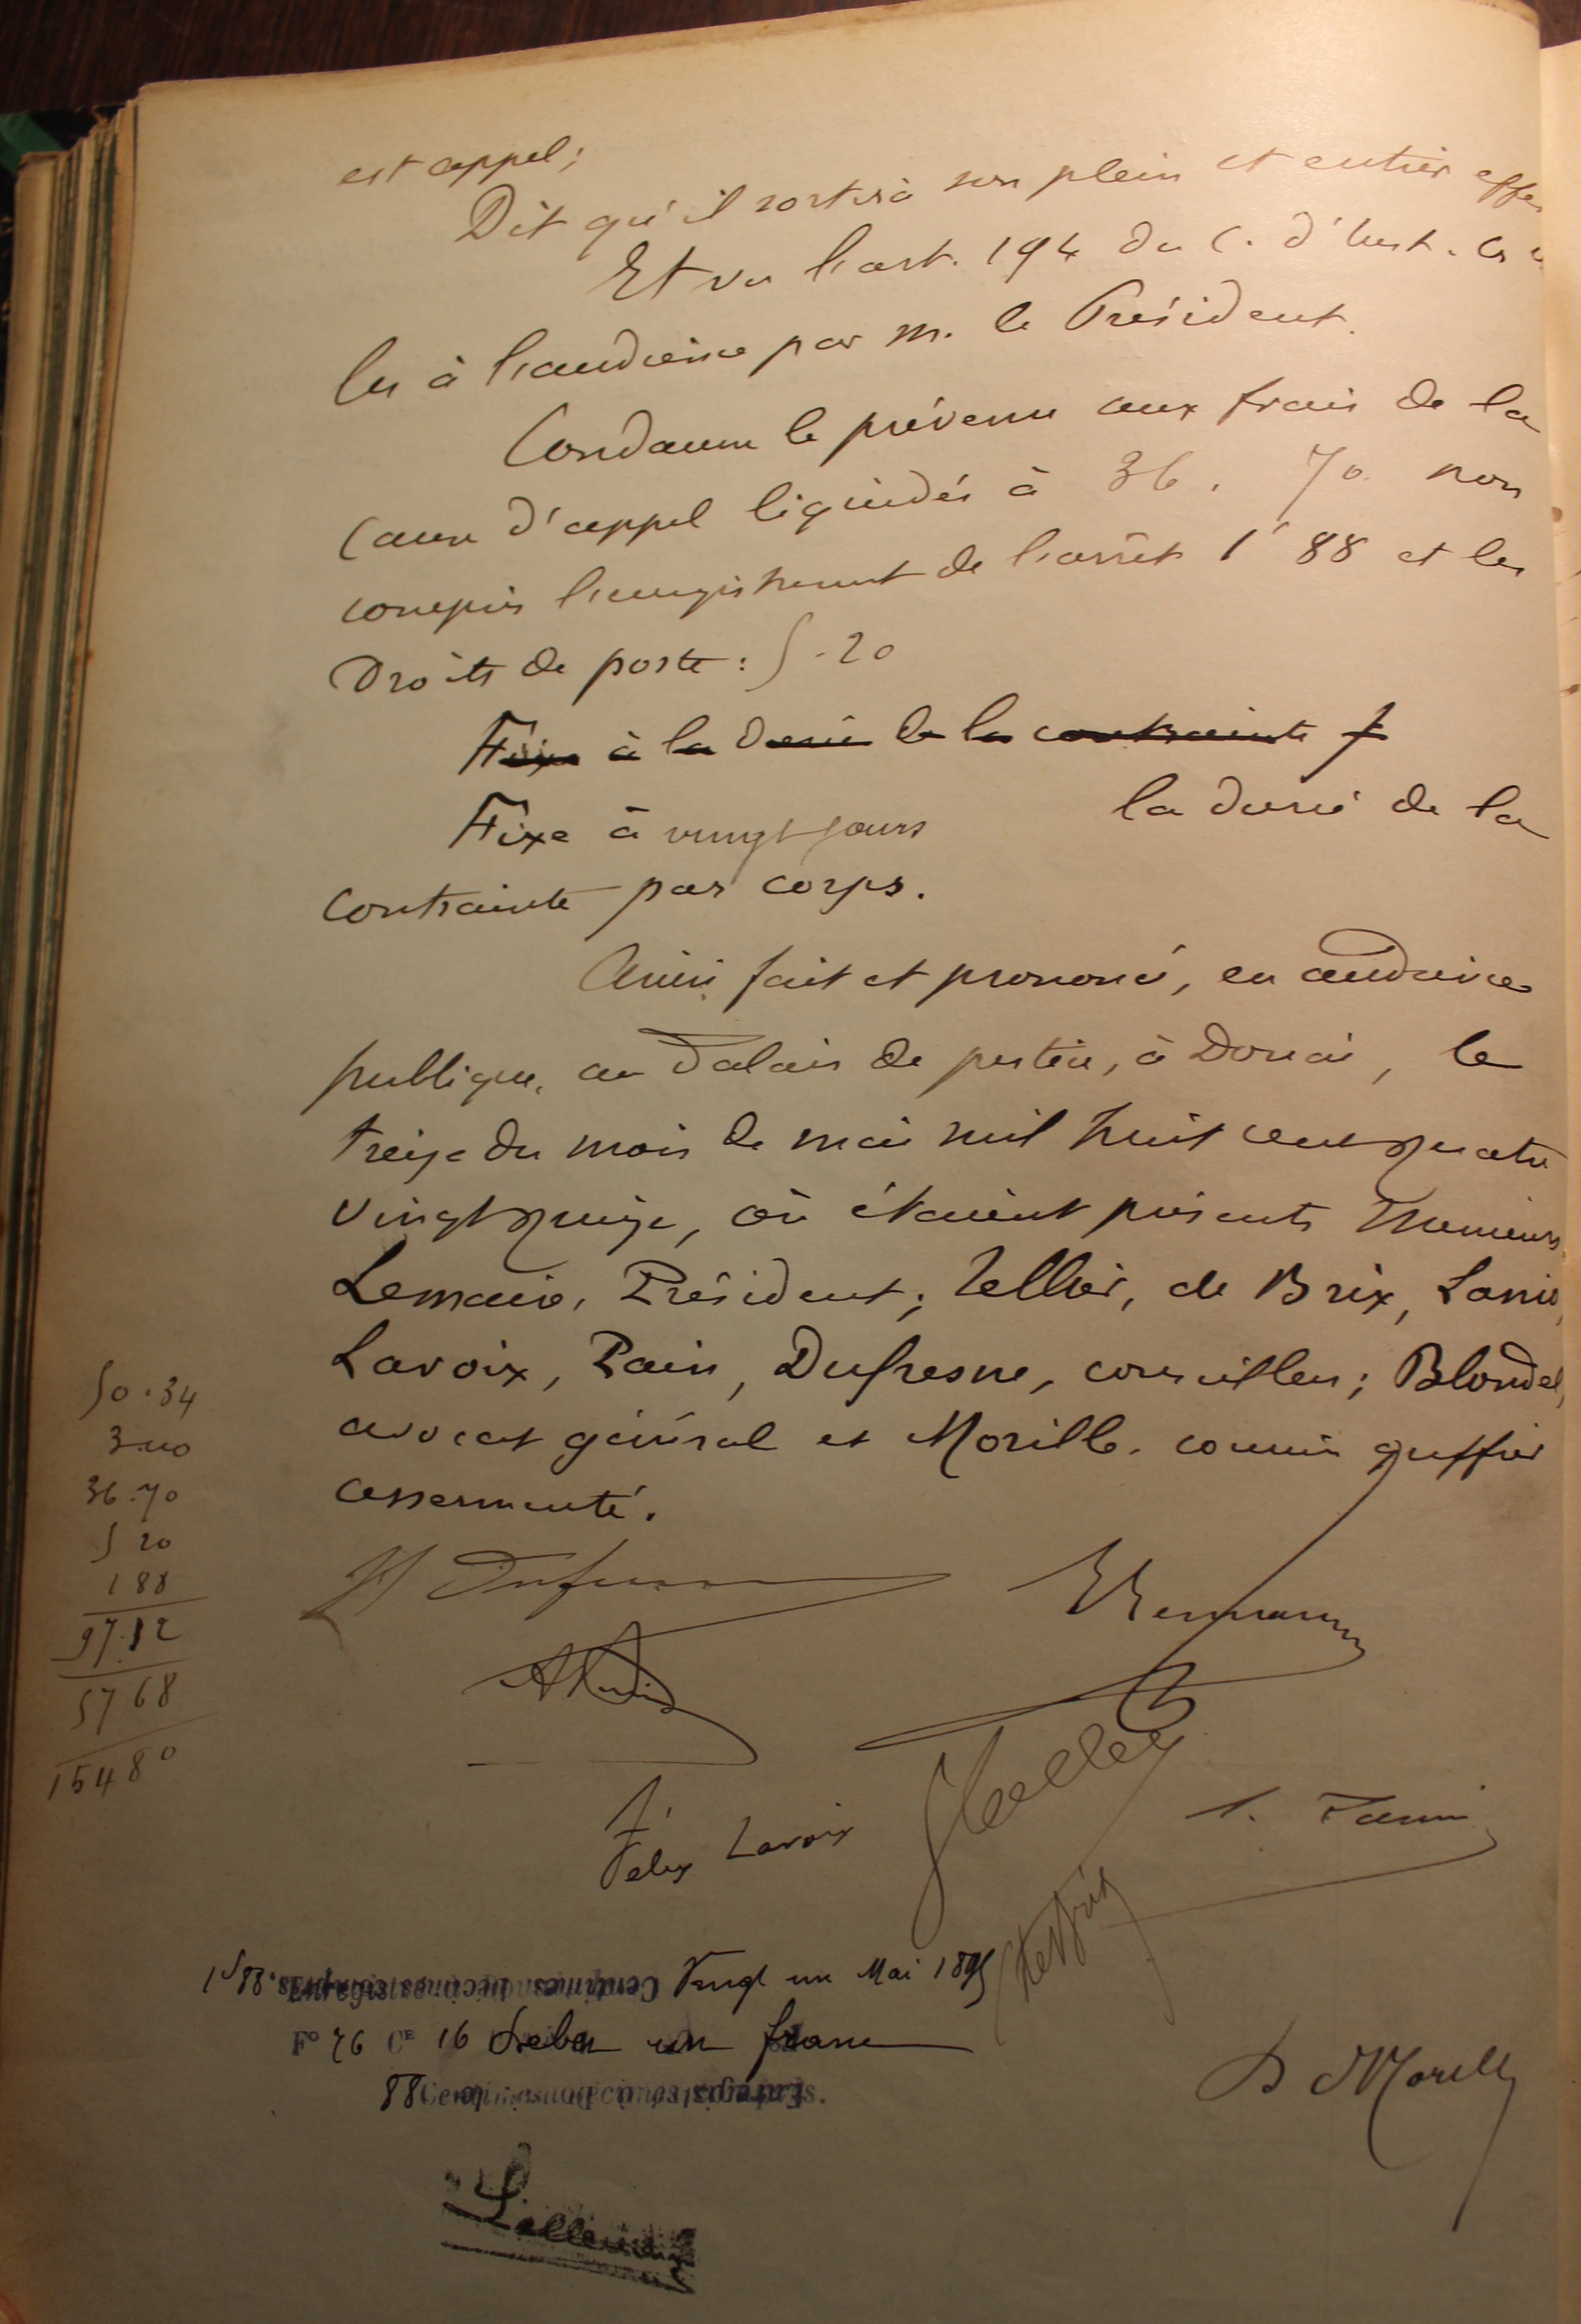 est appel;
Dit qu'il sortira son plein et entier effe
Et vu l'art. 194 du C. d'Inst. cr
lu à l'audience par M. le Président.
Condamne le prévenu aux frais de la
cause d'appel liquidés à 36. 70. non
compris l'enregistrement de l'arrêt 1 88 et les
Droits de poste : 5.20
Fixe à la durée de la contrainte
Fixe à vingt jours la durée de la
contrainte par corps.
Ainsi fait et prononcé, en audience
publique, au Palais de justice, à Douai, le
treize du mois de mai mil huit cent quatre
vingt quinze, où étaient présents Messieurs
Lemaire, Président; Tellier, de Brix,
Lavoix, Pain, Dufresne, conseillers; Blondel,
avocat général et Morille. commis greffier
assermenté.
50.34
3.00
36.70
5 20
1 88
97.12
57 68
154 80
Dufresne
Félix Lavoix
Vingt un Mai 1895
1 88
F° 76 Ce 16 un franc
88 Centimes
D Morille